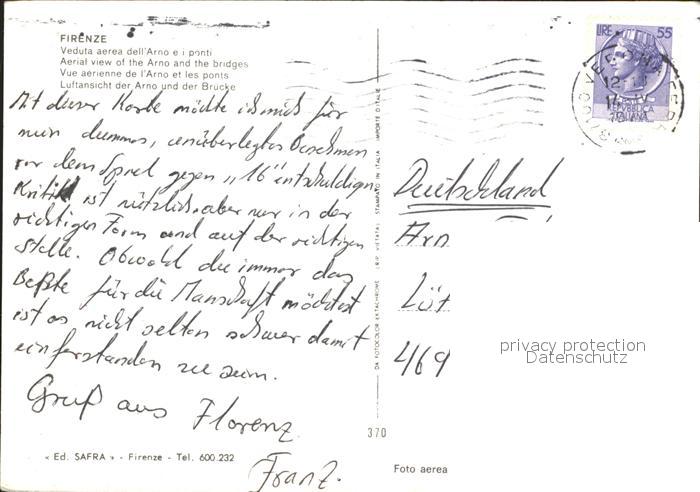 FIRENZE
Veduta aerea dell'Arno e i ponti
Aerial view of the Arno and the bridges
Vue aerienne de l'Arno et les ponts
Luftansicht der Arno und der Brücke
Mit dieser Karte möchte ich mich für
mein dummes, unüberlegtes Benehmen
vor dem Spiel gegen „16" entschuldigen
Kritik ist nützlich, aber nur in der
richtigen Form und auf der richtigen
stelle. Obwohl du immer das
Beßte für die Manschaft möchtest
ist es nicht selten schwer damit
einferstanden zu sein.
Gruß aus Florenz
Franz.
« Ed. SAFRA » - Firenze - Tel. 600.232
DA FOTOCOLOR EKTACHROME (RIP. VIETATA) STAMPATO IN ITALIA IMPORTE D'ITALIE
370
LIRE 55
REPVBBLICA
ITALIANA
Deutschland
Arn
Löt
469
privacy protection
Datenschutz
Foto aerea